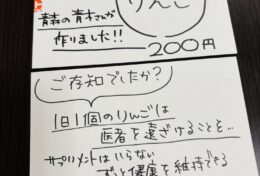 りんご
青森の青木さんが
作りました!!
200円
ご存知でしたか?
1日1個のりんごは
医者を遠ざけることを…
サプリメントはいらない
ずっと健康を維持できる